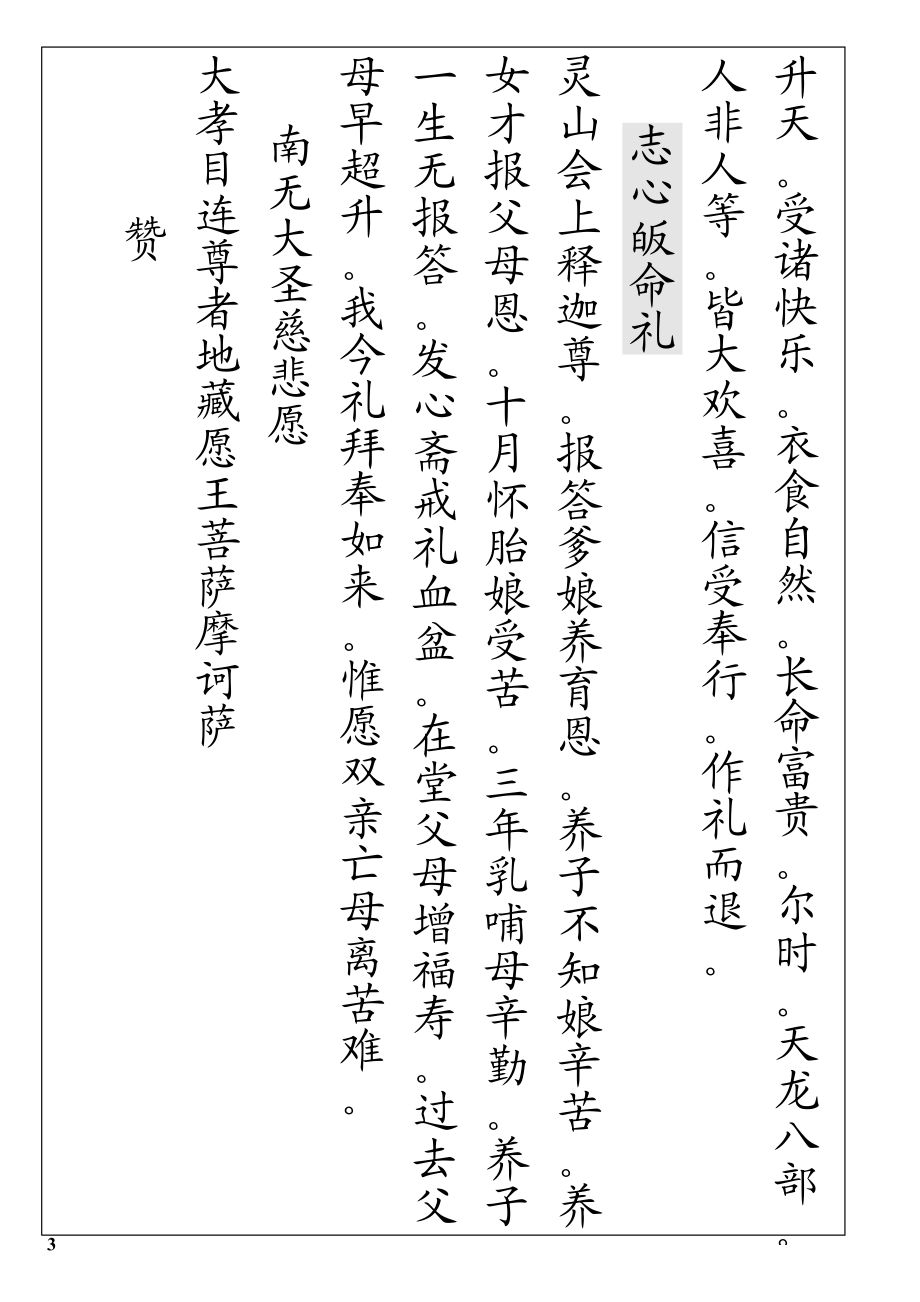 升天。受诸快乐。衣食自然。长命富贵。尔时。天龙八部。
人非人等。皆大欢喜。信受奉行。作礼而退。
志心皈命礼
灵山会上释迦尊。报答爹娘养育恩。养子不知娘辛苦。养
女才报父母恩。十月怀胎娘受苦。三年乳哺母辛勤。养子
一生无报答。发心斋戒礼血盆。在堂父母增福寿。过去父
母早超升。我今礼拜奉如来。惟愿双亲亡母离苦难。
南无大圣慈悲愿
大孝目连尊者地藏愿王菩萨摩诃萨
赞
3